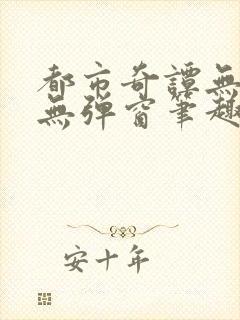 都市奇譚無
無彈窗筆趣
安十年